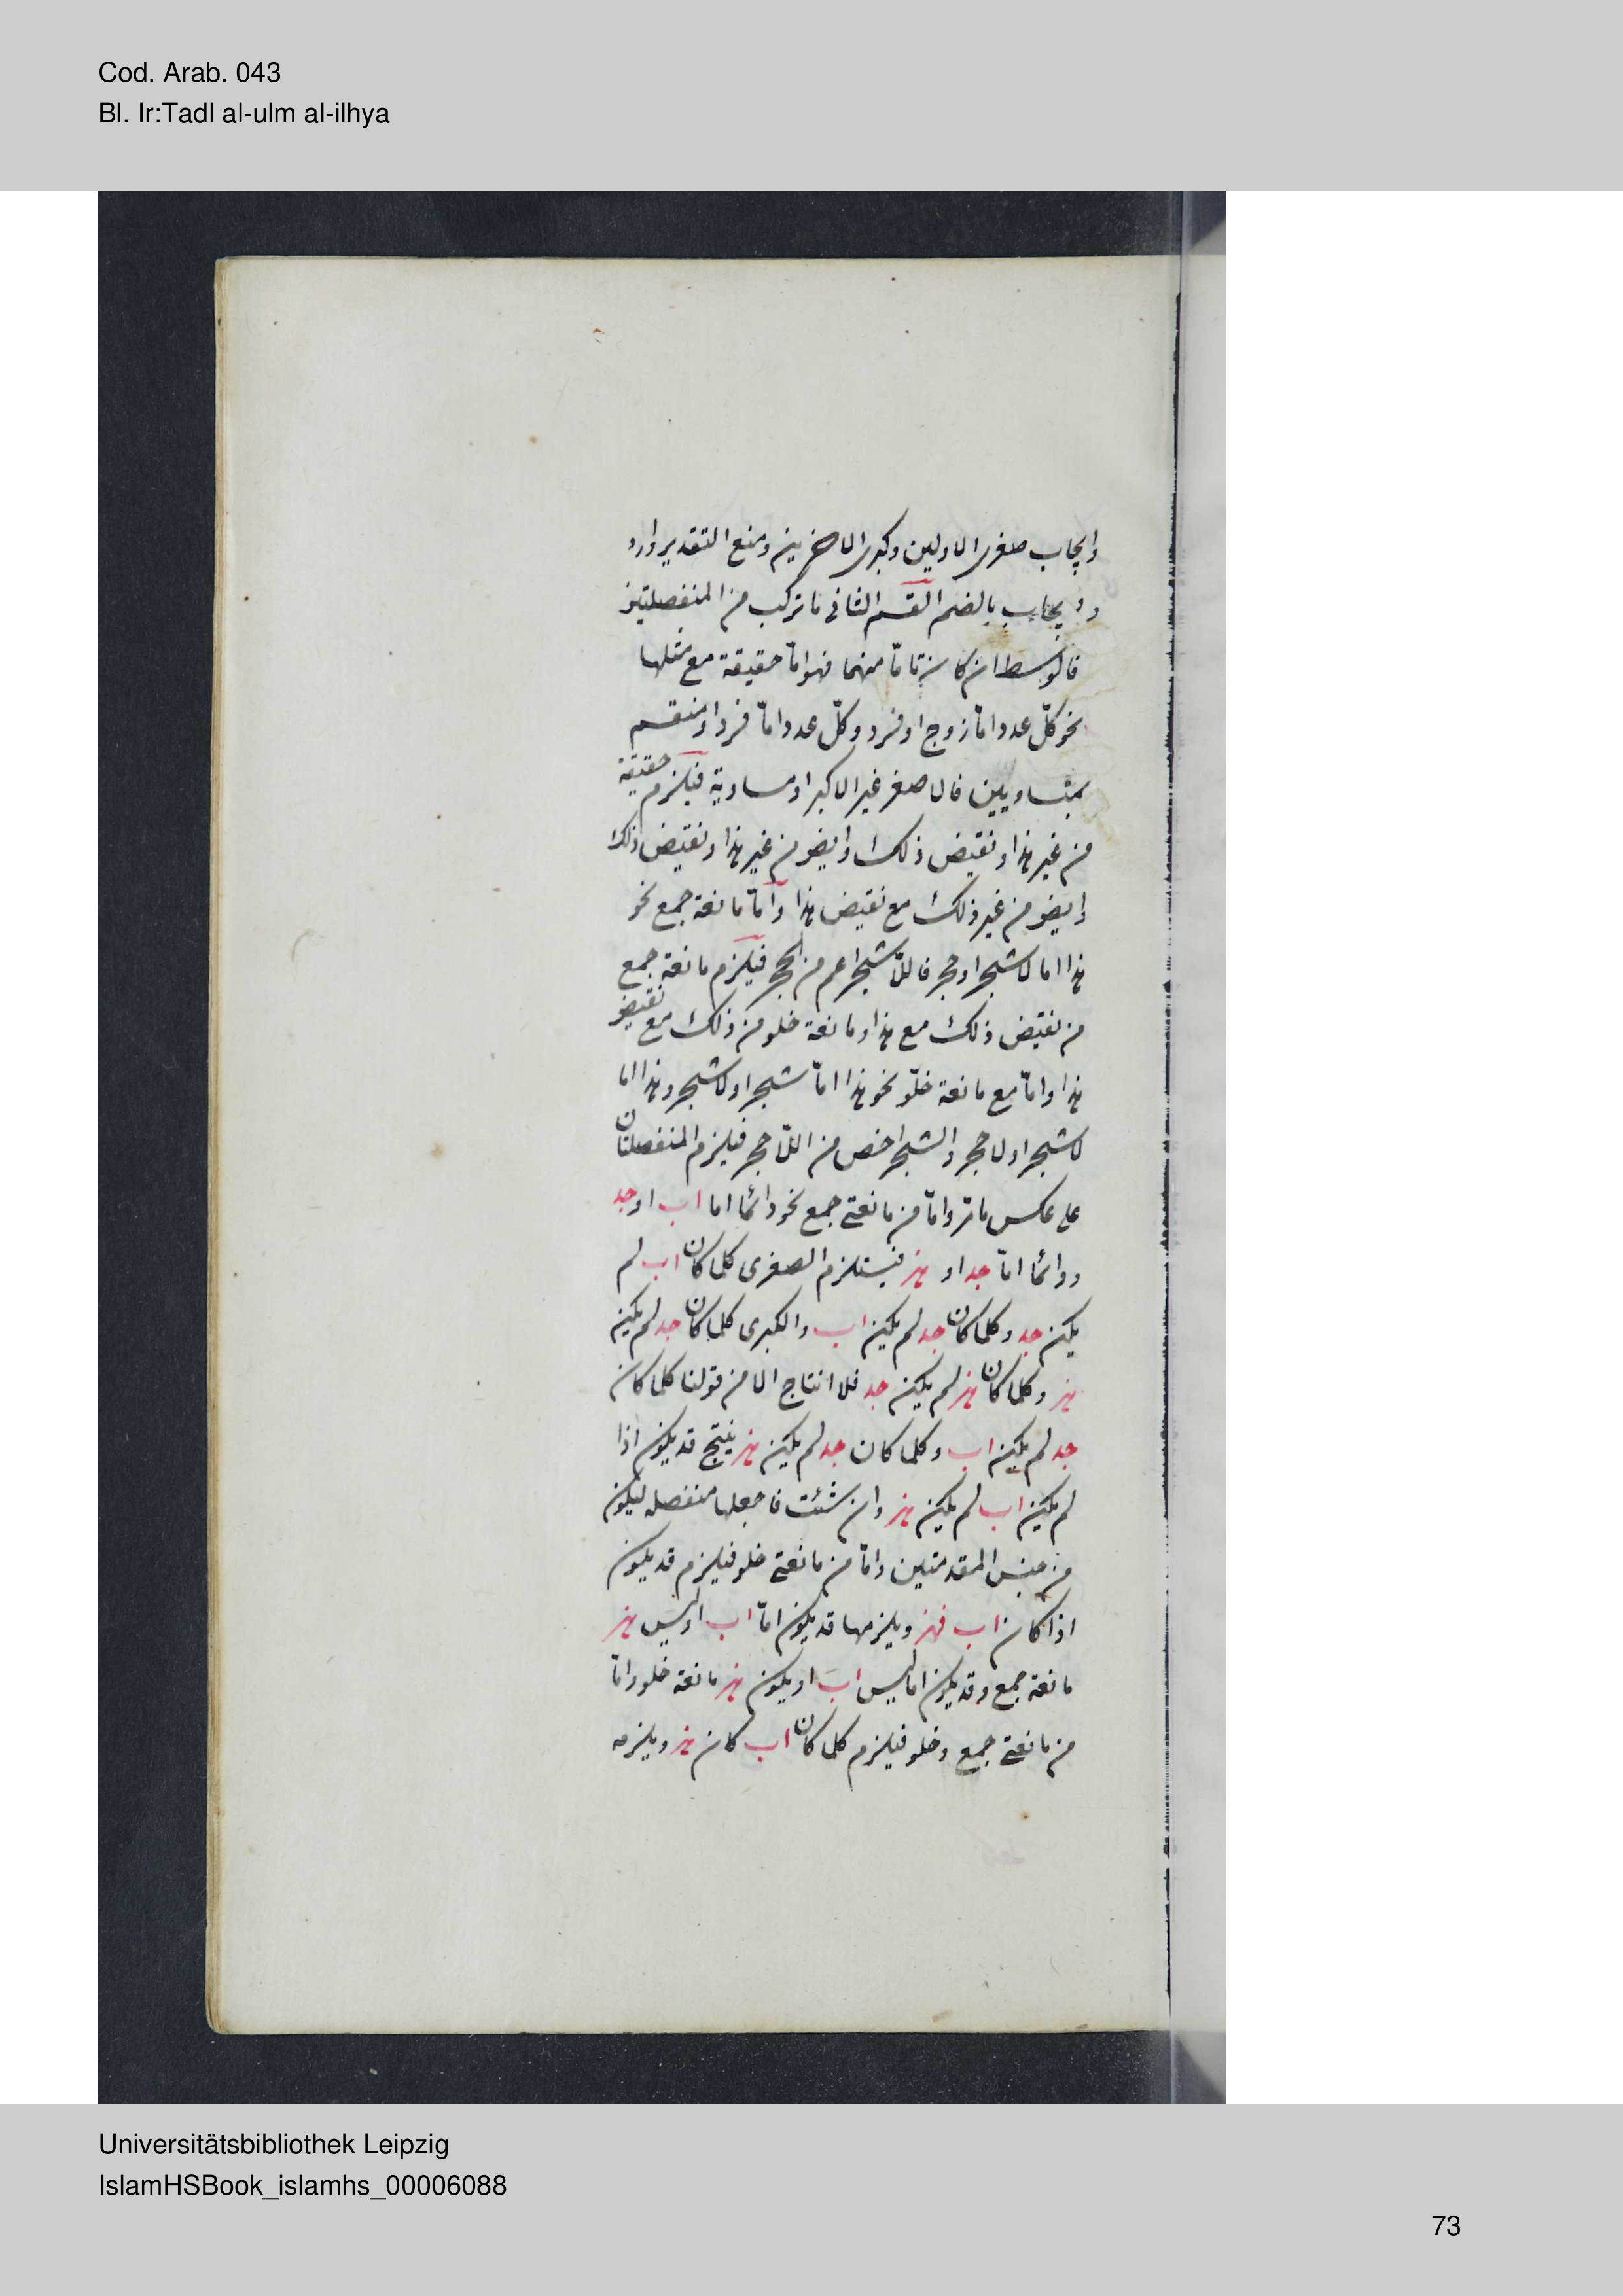 Cod. Arab. 043
Bl. Ir:Tadl al-ulm al-ilhya
وايجاب صغرى الاوليين وكبرى الاخريين ومنع التقدير وارد
ويجاب بالضم القسم الثانى ما تركب من المنفصلتين
فالوسط ان كان تامّا منهما فهو امّا حقيقة مع مثلها
نحو كلّ عدد امّا زوج او فرد وكلّ عدد امّا فرد او منقسم
بمتساويين فالاصغر غير الاكبر او مساوية فيلزم حقيقة
من غير هذا ونقيض ذلك وايض من غير هذا ونقيض ذلك
وايض من غير ذلك مع نقيض هذا وامّا مانعة جمع نحو
هذا اما لاشجر او حجر فاللّاشجر اعم من الحجر فيلزم مانعة جمع
من نقيض ذلك مع هذا ومانعة خلو من ذلك مع نقيض
هذا وامّا مع مانعة خلّو نحو هذا امّا شجر او لاشجر وهذا اما
لاشجر او لاحجر والشجر اخص من اللّاحجر فيلزم المنفصلتان
على عكس ما مرّ وامّا من مانعتى جمع نحو دائما اما اب او جد
ودائما امّا جد او هز فيستلزم الصغرى كلما كان اب لم
يكن جد وكلما كان جد لم يكن اب والكبرى كلما كان جد لم يكن
هز وكلما كان هز لم يكن جد فلا انتاج الا من قولنا كلما كان
جد لم يكن اب وكلما كان جد لم يكن هز ينتج قد يكون اذا
لم يكن اب لم يكن هز وان شئت فاجعلها منفصله ليكون
من جنس المقدمتين وامّا من مانعتى خلو فيلزم قد يكون
اذا كان اب فهز ويلزمها قد يكون امّا اب او ليس هز
مانعة جمع وقد يكون اما ليس اب او يكون هز مانعة خلو وامّا
من مانعتى جمع وخلو فيلزم كلما كان اب كان هز ويلزمه
Universitätsbibliothek Leipzig
IslamHSBook_islamhs_00006088
73